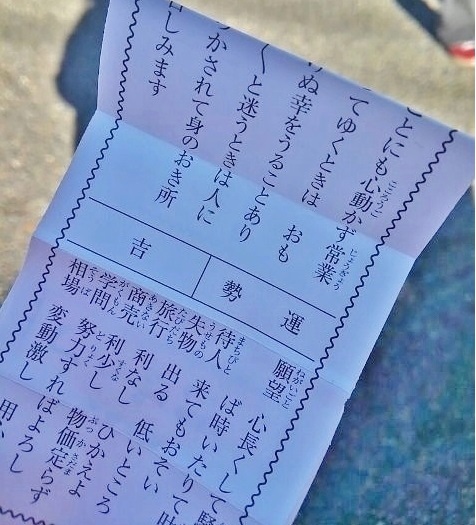 とにも心動かず常業
てゆくときは おも
りぬ幸をうることあり
くと迷うときは人に
かされて身のおき所
しみます
運勢
吉
願望 心長くして
ば時いたりて
待人 来てもおそい
失物 出る 低いところ
旅行 利なし
商売 利少し ひかえよ
物価定らず
学問 努力すればよろし
相場 変動激し